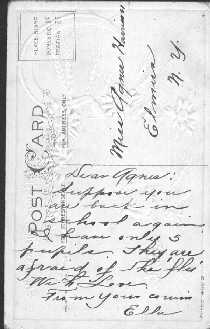 PLACE STAMP
DOMESTIC 1¢
FOREIGN 2¢
POST CARD
FOR ADDRESS ONLY
Miss Agnes
Elmira
N. Y.
Dear Agnes:
Suppose you
are back in
school again.
I have only 5
pupils. They are
afraid of the "flu"
With Love
From your cousin
Ella